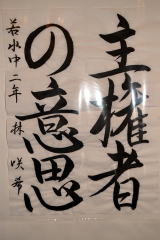 主権者
の意思
若水中二年 林咲希